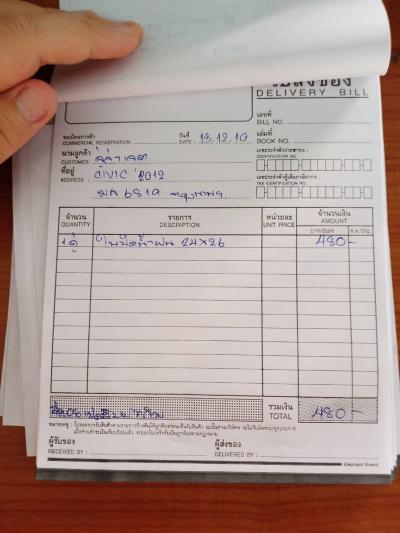 ใบส่งของ
DELIVERY BILL
เลขที่
BILL NO.
ทะเบียนการค้า
COMMERCIAL REGISTRATION
วันที่
DATE : 13,12,19
เล่มที่
BOOK NO.
นามลูกค้า
CUSTOMER
เลขประจำตัวประชาชน :
IDENTIFICATION NO.
ที่อยู่
ADDRESS : CIVIC 2012
เลขประจำตัวผู้เสียภาษีอากร :
TAX IDENTIFICATION NO.
6819 กรุงเทพฯ
จำนวน
QUANTITY
รายการ
DESCRIPTION
หน่วยละ
UNIT PRICE
จำนวนเงิน
AMOUNT
บาท/Baht
ส.ต./Stg.
1คู่ ใบปัดน้ำฝน 24x26 480-
รวมเงิน
TOTAL 480-
ผู้รับของ
RECEIVED BY :
ผู้ส่งของ
DELIVERED BY :
Elephant Brand